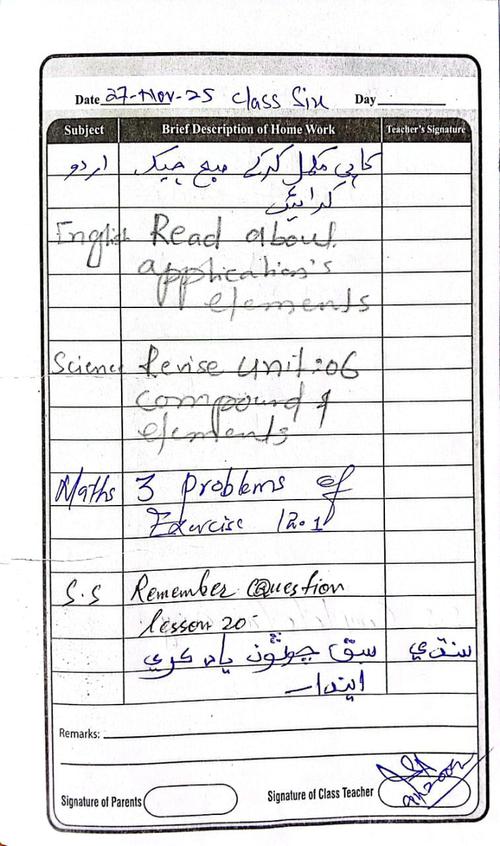 Date 27-Nov-25 Class Six Day
Subject Brief Description of Home Work Teacher's Signature
اردو کاپی مکمل کرکے صبح چیک
کرائیں
English Read about
application's
elements
Science Revise Unit:06
compound &
elements
Maths 3 problems of
Exercise 12.1
S.S Remember Question
lesson 20
سنڌي سبق چوٿون ياد ڪري
ايندا۔
Remarks:
Signature of Parents Signature of Class Teacher